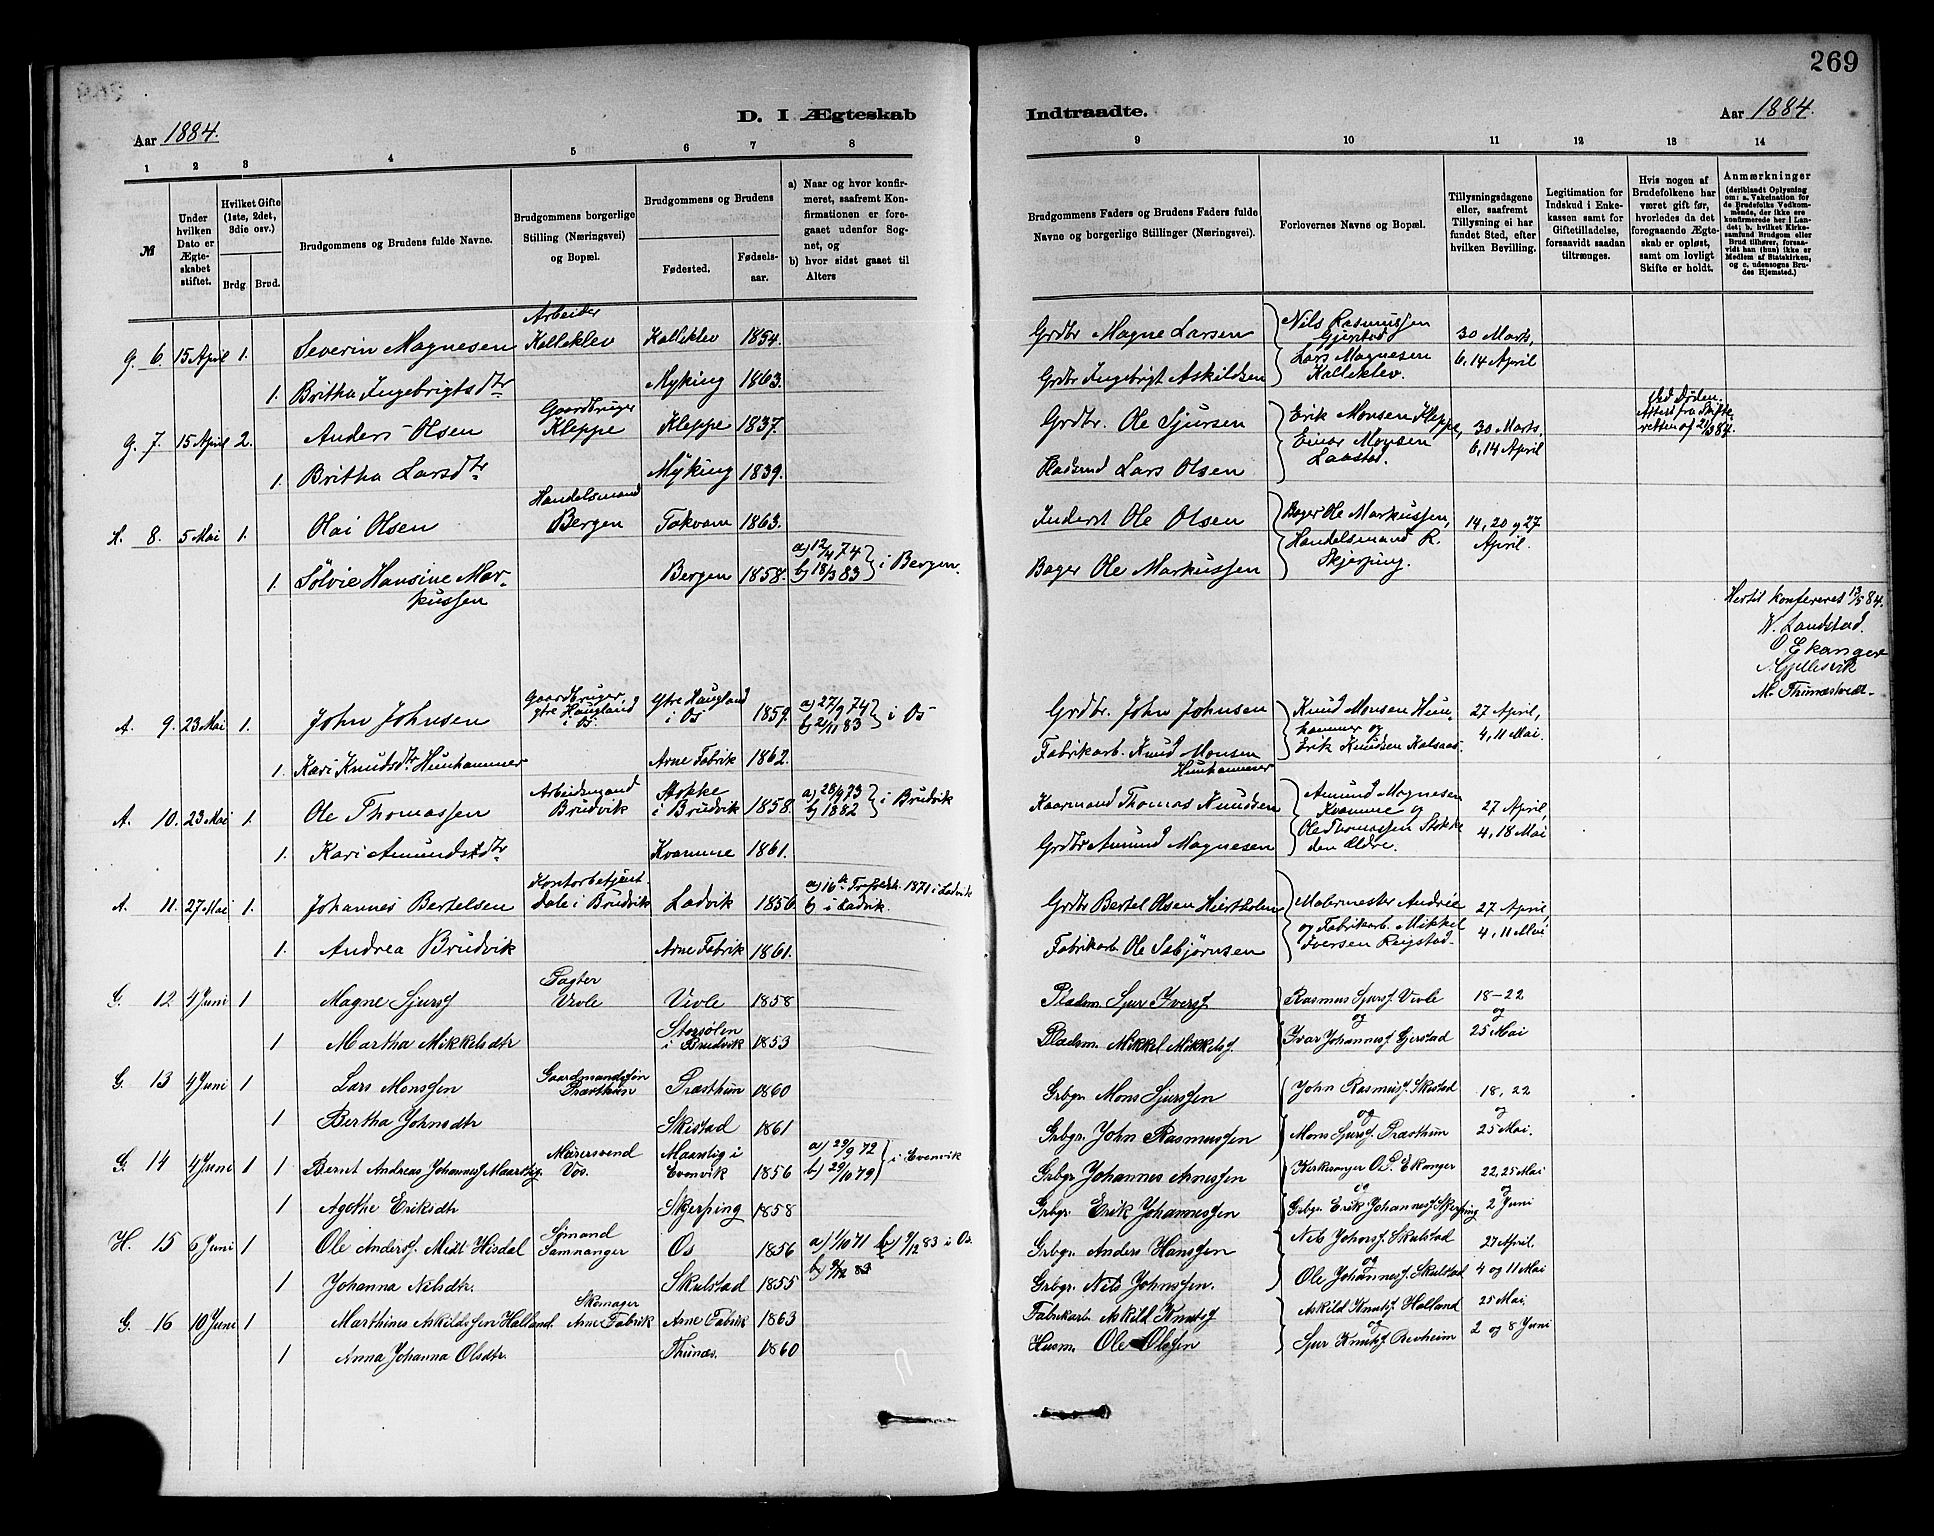 269
Aar 1884.
D. I Ægteskab
Indtraadte.
Aar 1884.
1 2 3 4 5 6 7 8 9 10 11 12 13 14
№
Under hvilken Dato er Ægteskabet stiftet.
Hvilket Gifte (1ste, 2det, 3die osv.)
Brdg.
Brud.
Brudgommens og Brudens fulde Navne.
Brudgommens borgerlige Stilling (Næringsvei) og Bopæl.
Brudgommens og Brudens
Fødested.
Fødselsaar.
a) Naar og hvor konfirmeret, saafremt Konfirmationen er foregaaet udenfor Sognet, og
b) hvor sidst gaaet til Alters
Brudgommens Faders og Brudens Faders fulde Navne og borgerlige Stillinger (Næringsvei).
Forlovernes Navne og Bopæl.
Tillysningsdagene eller, saafremt Tillysning ei har fundet Sted, efter hvilken Bevilling.
Legitimation for Indskud i Enkekassen samt for Giftetilladelse, forsaavidt saadan tiltrænges.
Hvis nogen af Brudefolkene har været gift før, hvorledes da det foregaaende Ægteskab er opløst, samt om lovligt Skifte er holdt.
Anmærkninger
(deriblandt Oplysning om: a. Vakcination for de Brudefolks Vedkommende, der ikke ere konfirmerede her i Landet; b. hvilket Kirkesamfund Brudgom eller Brud tilhører, forsaavidt han (hun) ikke er Medlem af Statskirken, og c. udensogns Brudes Hjemsted.)
G. 6. 15 April 1. Severin Magnesen Arbeider Kalleklev Kalleklev 1854. Grdbr Magne Larsen Nils Rasmussen Gjerstad 30 Marts,
1. Britha Ingebrigtsdtr Myking 1863. Grdbr Ingebrigt Askildsen Lars Magnesen Kalleklev. 6, 14 April
G. 7. 15 April 2. Anders Olsen Gaardbruger Kleppe Kleppe 1837. Grdbr. Ole Sjursen Erik Monsen Kleppe, 30 Marts, Ved Døden. Attest fra Skifteretten af 21/3 84.
1. Britha Larsdtr Myking 1839. Lars Olsen Einar Monsen Laastad. 6, 14 April
H. 8. 5 Mai 1. Olai Olsen Handelsmand Bergen Takvam 1863. Inderst Ole Olsen Bager Ole Markussen, 14, 20 og 27
1. Sølvie Hansine Markussen Bergen 1858. a) 12/4 74 b) 18/3 83 i Bergen. Bager Ole Markussen Handelsmand R. Skjerping. April.
Hertil konfereret 13/5 84.
N. Landstad.
O Ekanger
A Gjellesvik
M. Thunestvedt.
A. 9. 23 Mai 1. John Johnsen Gaardbruger, ytre Haugland i Os. Ytre Haugland i Os 1859. a) 27/9 74 b) 21/11 83 i Os Grdbr. John Johnsen Knud Monsen Hunhammer og 27 April,
1. Kari Knudsdtr. Hunhammer Arne Fabrik 1862. Fabrikarb. Knud Monsen Hunhammer Erik Knudsen Kalsaas. 4, 11 Mai.
A. 10. 23 Mai 1. Ole Thomassen Arbeidsmand Brudvik Stokke i Brudvik 1858. a) 28/9 73 b) 1882 i Brudvik Kaarmand Thomas Knudsen Amund Magnesen Kvamme og 27 April,
1. Kari Amundsdtr Kvamme 1861. Grdbr Amund Magnesen Ole Thomassen Stokke den Ældre. 4, 18 Mai
A. 11. 27 Mai 1. Johannes Bertelsen Kontorbetjent Dale i Brudvik Ladvik 1856. a) 16de 1871 i Ladvik b) i Ladvik. Grdbr Bertel Olsen Hiertholm Malermester Andvie 27 April,
1. Andrea Brudvik Arne Fabrik 1861. Fabrikarb Ole Sebjørnsen og Fabrikarb. Mikkel Iversen Reigstad. 4, 11 Mai
G. 12 4 Juni 1 Magne Sjursf Pagter Vevle Vevle 1858 Pladsm. Sjur Iversf. Rasmus Sjursf. Vevle og 18-22 og
1 Martha Mikkelsdtr Storsølen i Brudvik 1853 Pladsm. Mikkel Mikkelsf. Ivar Johannesf Gjerstad 25 Mai
G. 13 4 Juni 1 Lars Monssen Gaardmandssøn Præsthun Præsthun 1860 Grbgr. Mons Sjurssen John Rasmusf. Skistad og 18, 22 og
1 Bertha Johnsdtr Skistad 1861 Grbgr. John Rasmussen Mons Sjursf. Præsthun 25 Mai.
G. 14 4 Juni 1 1 Bernt Andreas Johannesf. Maurersvend Vos. i Evenvik 1856 a) 29/9 72 b) 29/10 79 i Evenvik Grbgr Johannes Arnessen Kirkesanger O. S. Ekanger og 22, 25 Mai og
1 Agathe Eriksdtr Skjerping 1858 Grbgr. Erik Johannessen Grbgr. Erik Johannesf Skjerping 2 Juni
H. 15 6 Juni 1 Ole Andersf. Midt Hisdal Sømand Samnanger Os 1856 a) 1/10 71 b) 9/12 83 i Os. Grbgr. Anders Hanssen Nels Johnsf Skulstad og 27 April,
1 Johanna Nelsdtr. Skulstad 1855 b) 9/12 83 Grbgr. Nels Johnssen. Ole Johannesf. Skulstad 4 og 11 Mai
G. 16 10 Juni 1 Marthinus Askildssen Halland Skomager Arne Fabrik Arne Fabrik 1863 Fabrikarb. Askild Knutsf Askild Knutsf. Halland og 25 Mai,
1 Anna Johanna Olsdtr. Thunæs. 1860 Husm. Ole Olssen Sjur Knutsf Revheim 2 og 8 Juni